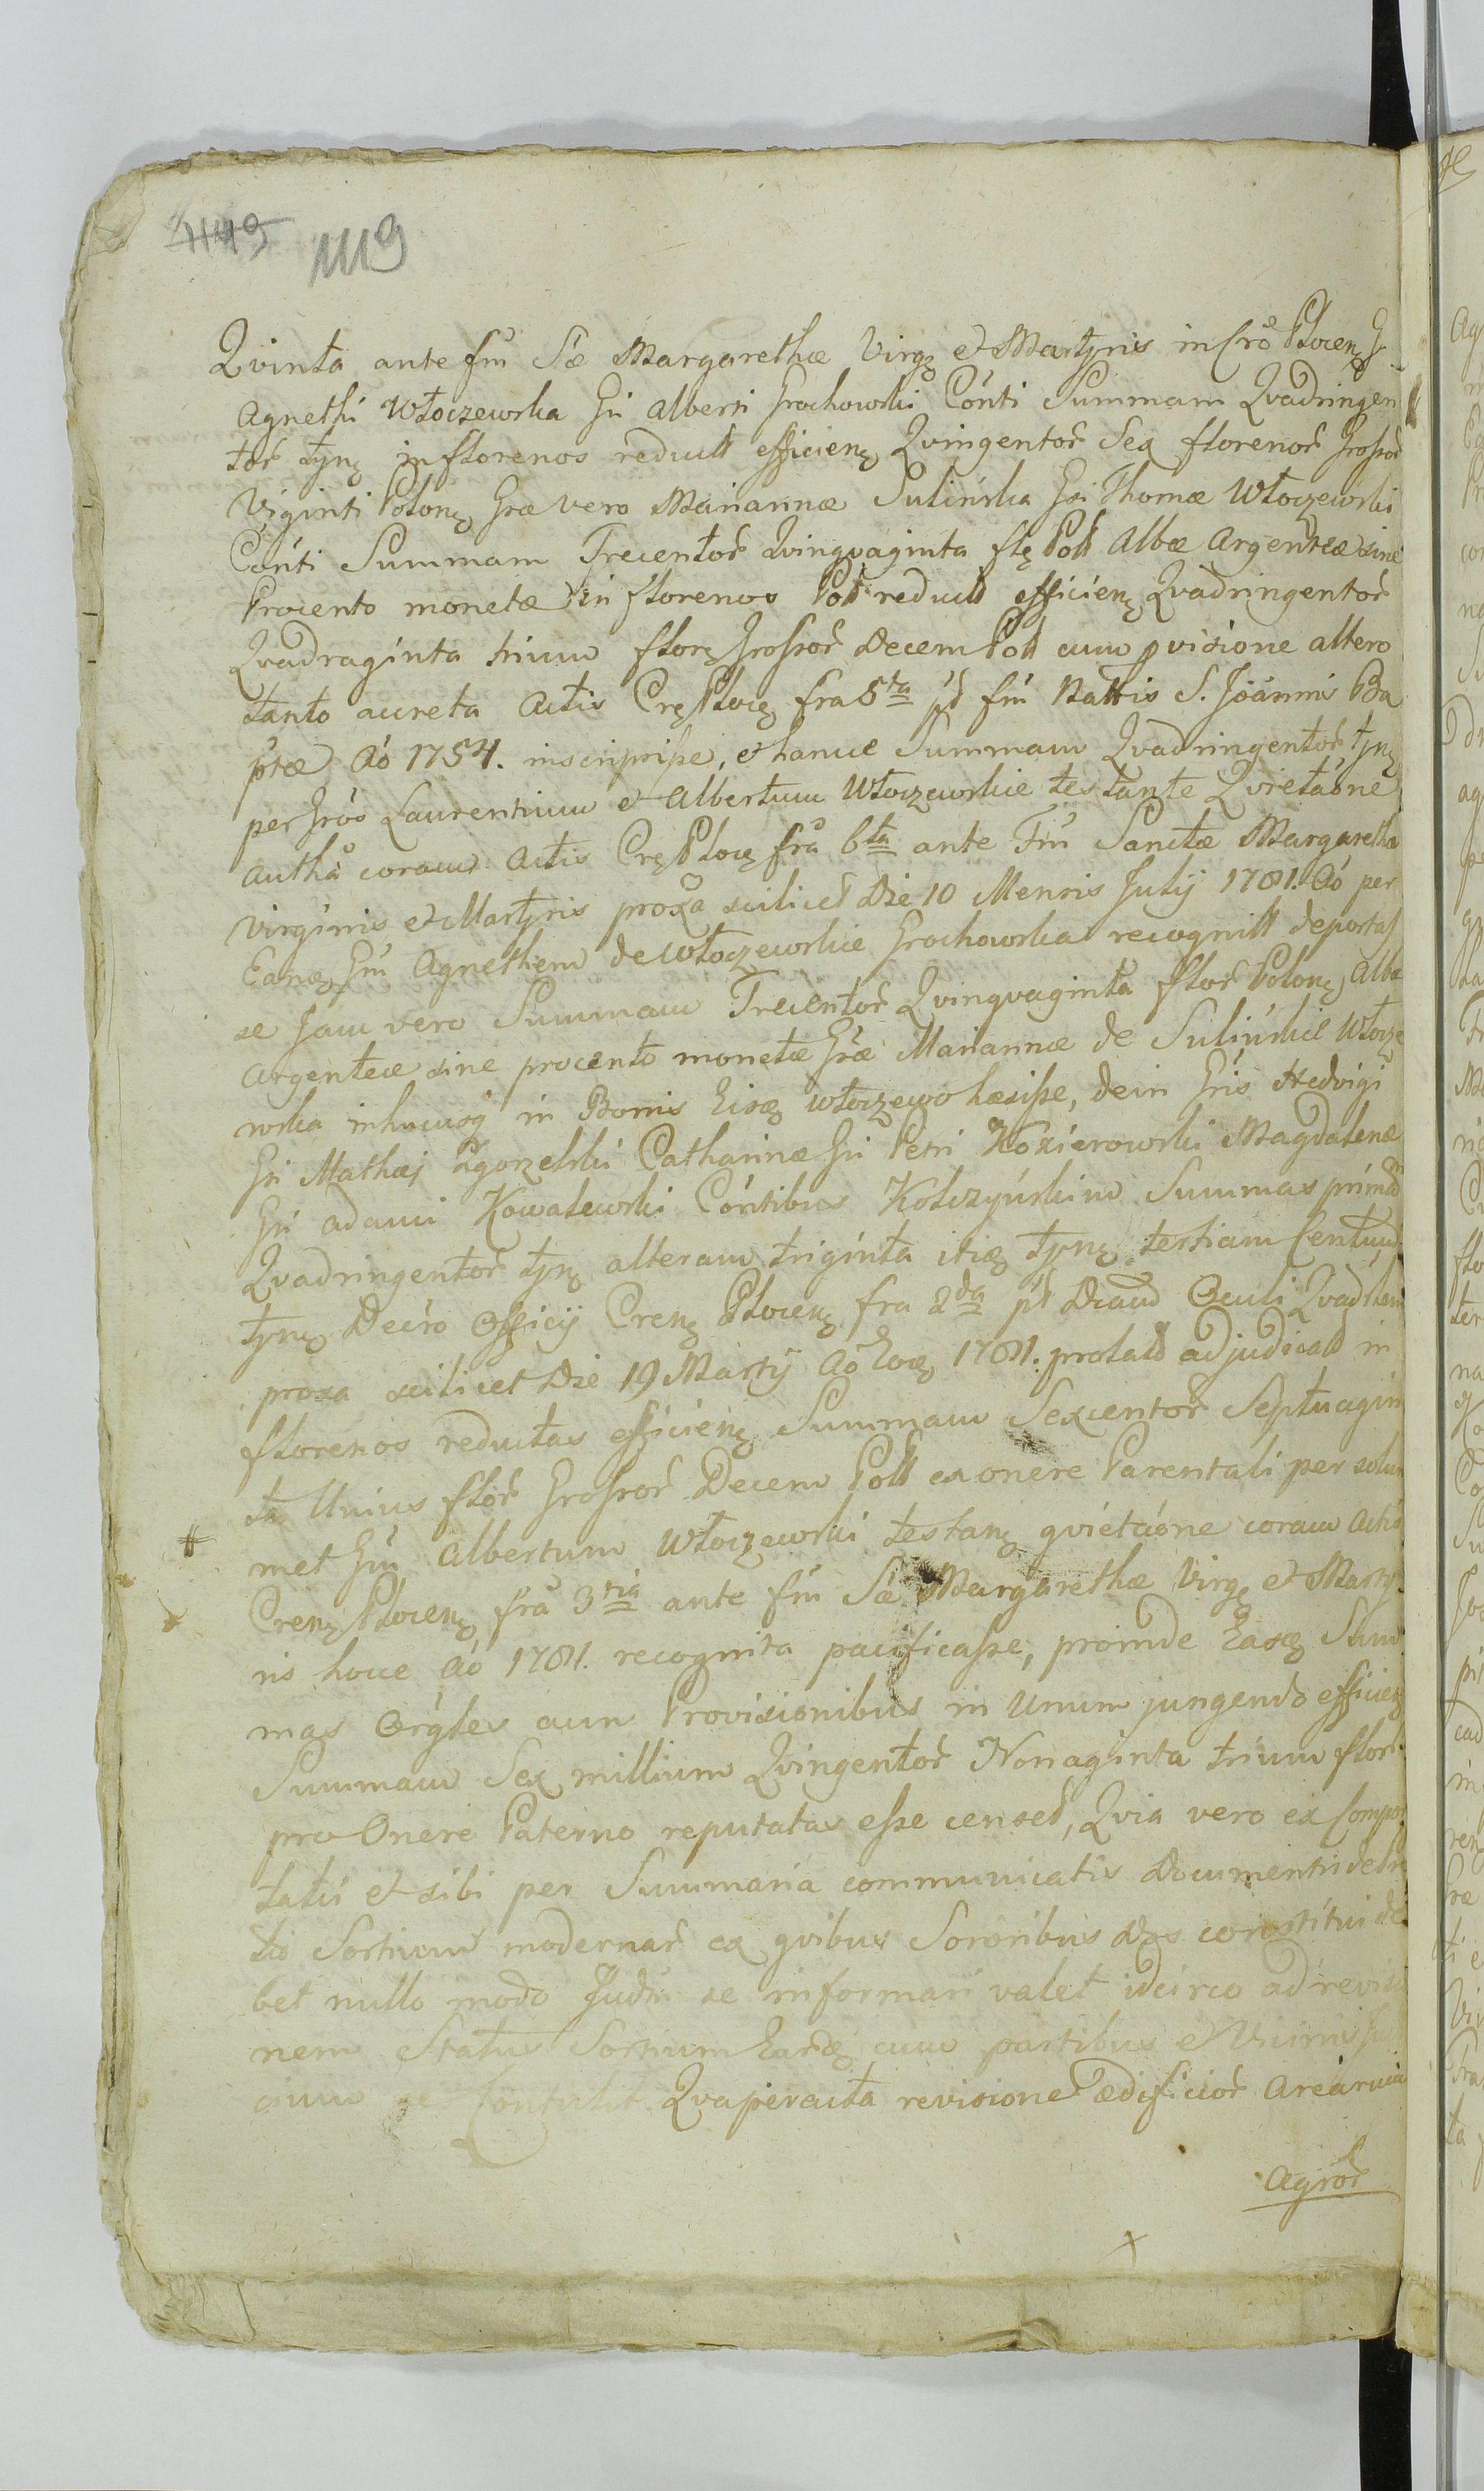 1119
Qvinta ante fm̃ Sæ Margarethæ Virgę et Martyris in Cro Plocenę G
Agnethi Włoczewska Gi Alberti Grochowski Cónti Summam Qvadringen
tor̃ tynę in florenos reductt efficienę Qvingentor̃ Sex florenor̃ Grossor̃
Viginti Polonę Græ vero Mariannæ Sulińska Gsi Thomæ Włoczewski
Cónti Summam Trecentor̃ Qvinqvaginta flę Poll Albæ Argenteæ sine
Procento monetæ in florenos Poll reductt efficienę Qvadringentor̃
Qvadraginta trium florę Grossor̃ Decem Poll cum pvisione altero
tanto aucreta Actis Crę Plocę fra 5ta pt fm̃ Nattis S. Joannis Ba
ptæ Aó 1754. inscripsisse, et hancce Summam Qvadringentor̃ tynę
per Grós Laurentium et Albertum Włoczewskie testante Qvietaóne
autha coram Actis Crę Plocę fra 6ta ante Fm̃ Sanctæ Margaretha
Virginis et Martyris proxa scilicet Die 10 Mensis Julij 1781. Aó per
Eanę Gm̃ Agnethem de Włoczewskie Grochowska recognitt deportass
se Jam vero Summam Trecentor̃ Qvinqvaginta flor̃ Polonę Albæ
Argenteæ sine procento monetæ Græ Mariannæ de Sulińskie Włocze
wska inhucusq in Bonis Eisę Włoczewo hæsisse, dein Gris Hedvigi
Gsi Mathæj Zgorzelski Catharinæ Gsi Petri Kozierowski Magdalenæ
Gsi Adami Kowalewski Cóntibus Kolczyńskim Summas primã
Qvadringentor̃ tynę alteram triginta itię tynę tertiam Centum
tynę Decro Officij Crenę Plocenę fra 2da pt Dcam Oculi Qvadlem
proxa scilicet Die 19 Martij Aó Eoę 1781. prolatt adjudicatt in
florenos reductas efficienę Summam Sexcentor̃ Septuagin
ta Unius flor̃ Grossor̃ Decem Poll ex onere Parentali per solum
# met Gm̃ Albertum Włoczewski testanę qvietaóne coram Actis
Crenę Plocenę fra 3tia ante fm̃ Sæ Margarethæ Virgę et Marty
ris hocce Aó 1781. recognita pacificasse, proinde Easę Sum
mas Orgles cum Provisionibus in Unum jungendo efficienę
Summam Sex millium Qvingentor̃ Nonaginta trium flor̃
pro Onere Paterno reputatas esse censet, Qvia vero ex Compor
tatis et sibi per Summaria communicatis Documentis debi
tis Sortium modernar̃ ex qvibus Sororibus dos constitui de
bet nullo modo Judm se informari valet idcirco ad revisio
nem Status Sortium Eardę cum partibus et Vicinis Judi
cium se Contulit Qva peracta revisione ædificior̃ Arearum
Agror̃